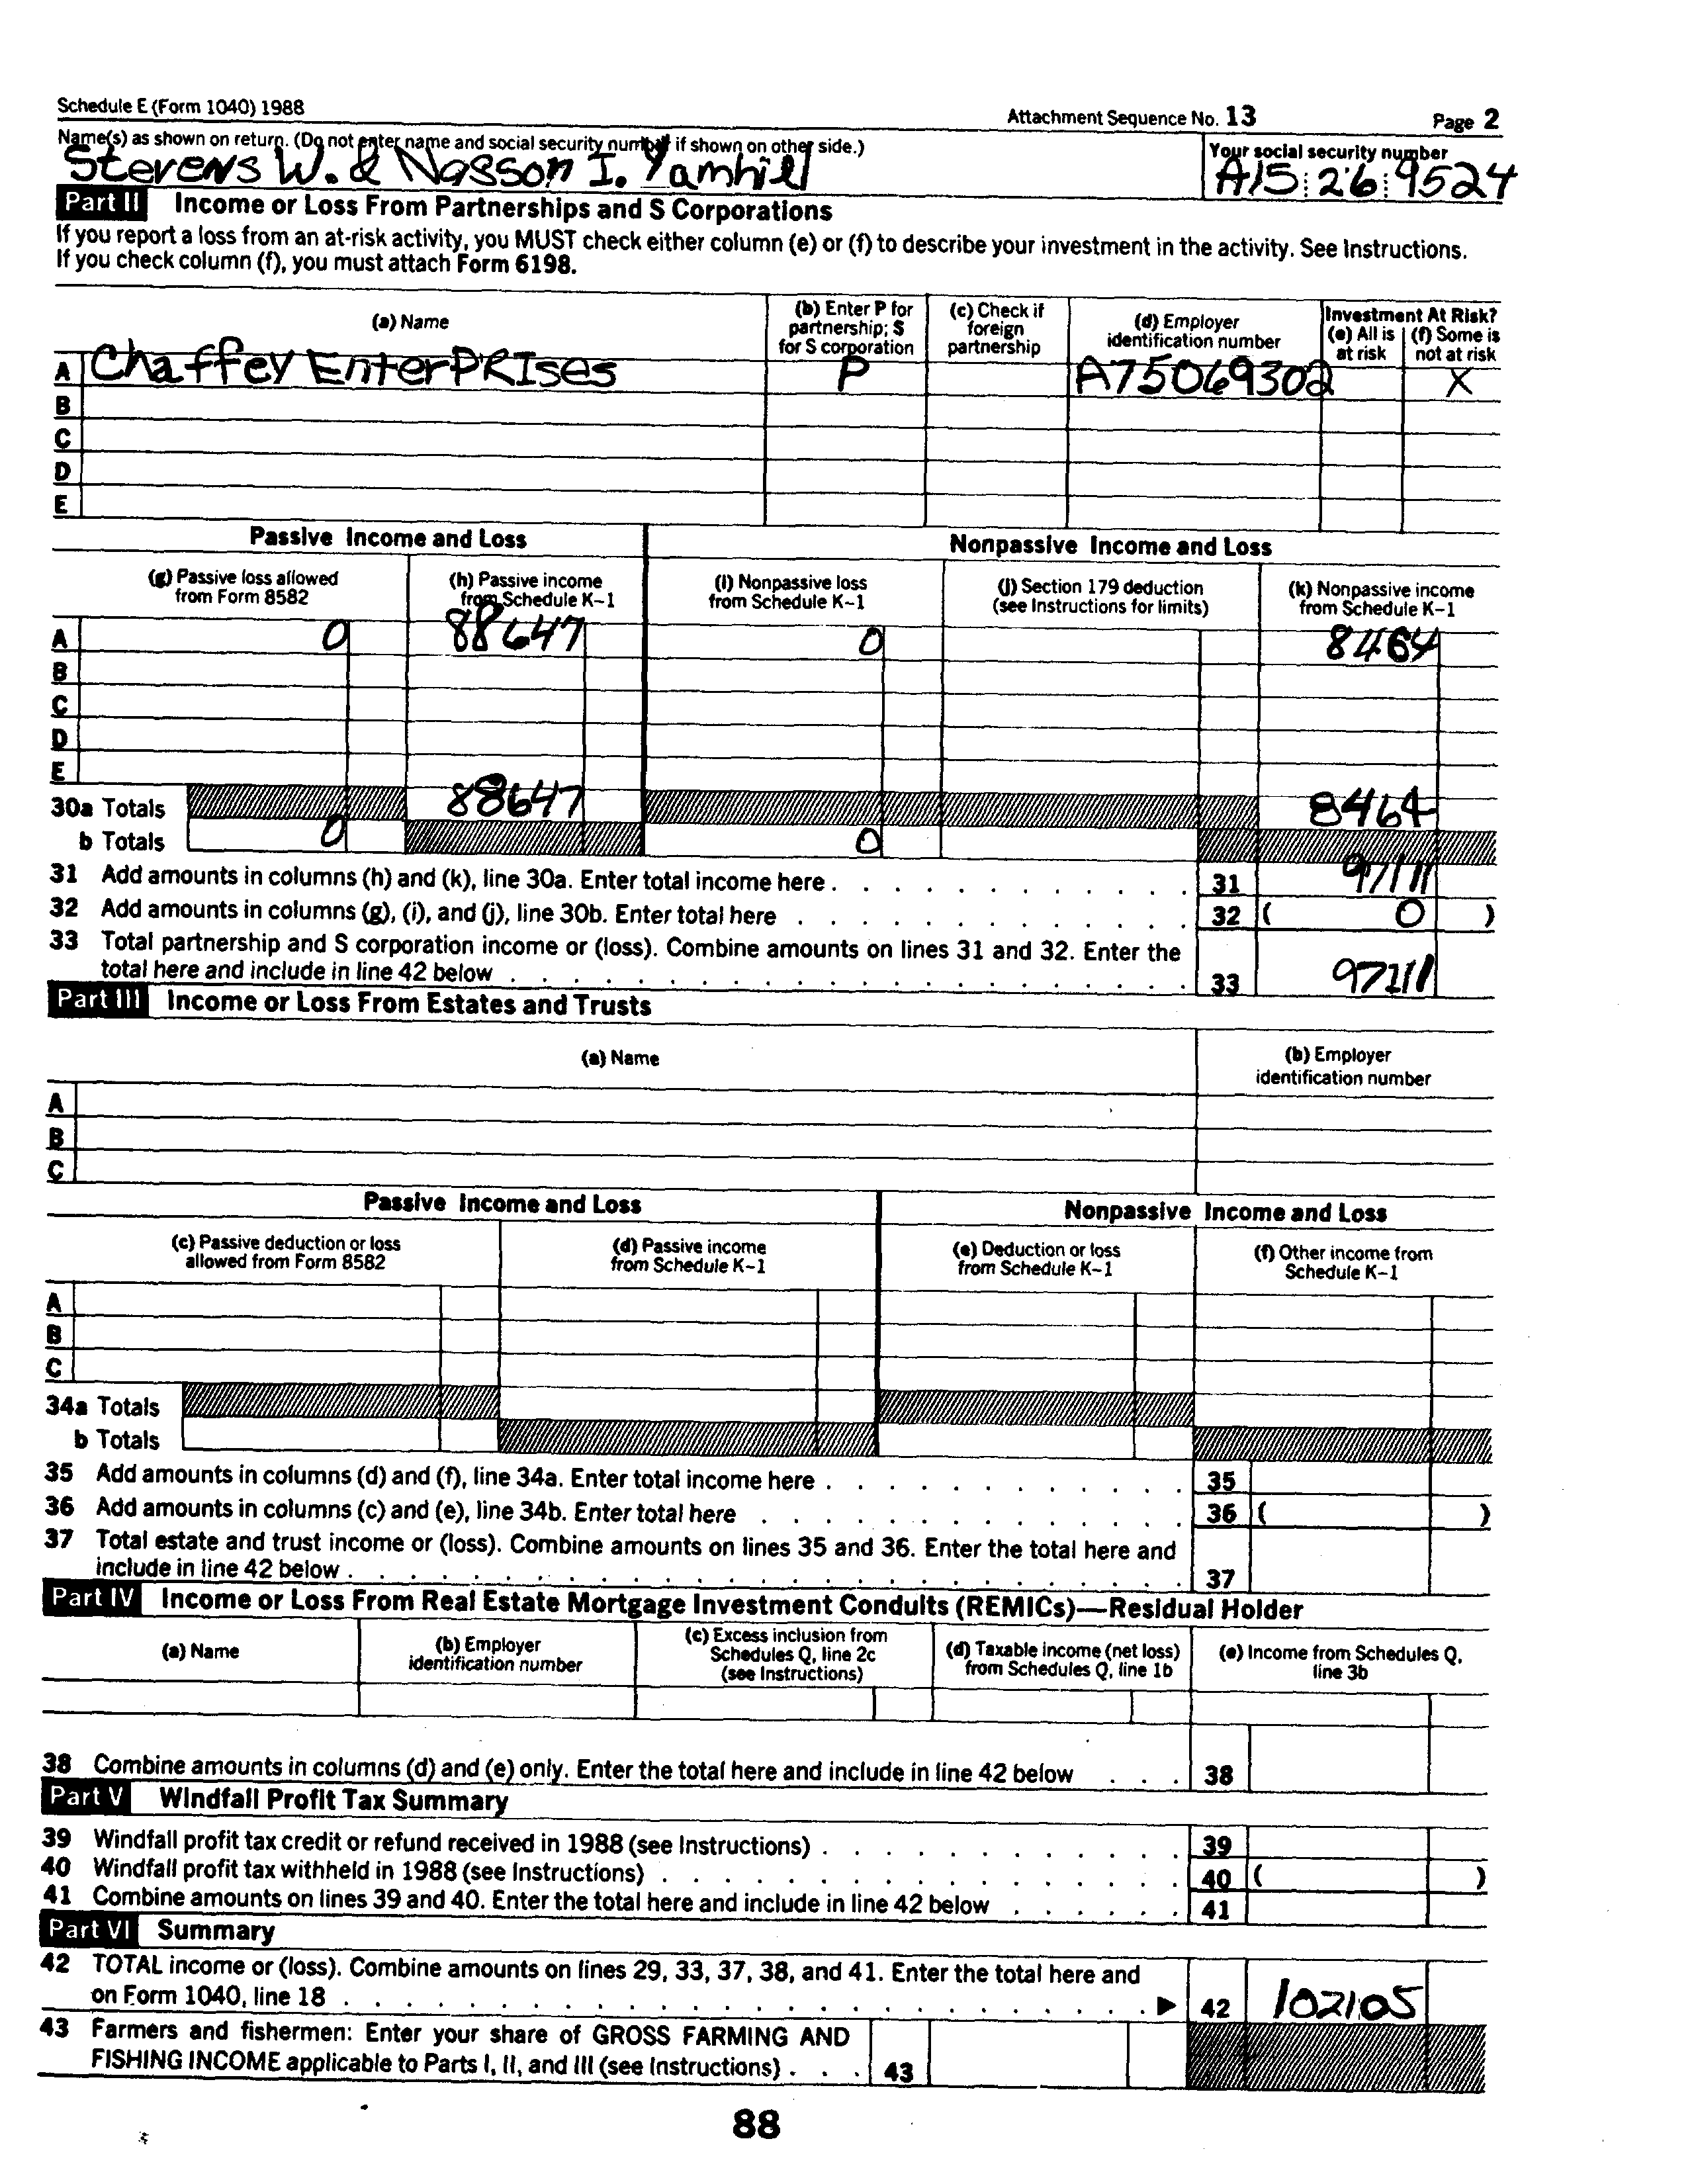 Schedule E (Form 1040) 1988 Attachment Sequence No. 13 Page 2
Name(s) as shown on return. (Do not enter name and social security number if shown on other side.) Your social security number
Stevens W. & Nasson I. Yamhill A15 26 9524
Part II Income or Loss From Partnerships and S Corporations
If you report a loss from an at-risk activity, you MUST check either column (e) or (f) to describe your investment in the activity. See Instructions.
If you check column (f), you must attach Form 6198.
(a) Name (b) Enter P for partnership; S for S corporation (c) Check if foreign partnership (d) Employer identification number Investment At Risk? (e) All is at risk (f) Some is not at risk
A Chaffey EnterPRIses P A75069302 X
B
C
D
E
Passive Income and Loss Nonpassive Income and Loss
(g) Passive loss allowed from Form 8582 (h) Passive income from Schedule K-1 (i) Nonpassive loss from Schedule K-1 (j) Section 179 deduction (see Instructions for limits) (k) Nonpassive income from Schedule K-1
A 0 88647 0 8464
B
C
D
E
30a Totals 88647 8464
b Totals 0 0
31 Add amounts in columns (h) and (k), line 30a. Enter total income here . 31 97111
32 Add amounts in columns (g), (i), and (j), line 30b. Enter total here 32 ( 0 )
33 Total partnership and S corporation income or (loss). Combine amounts on lines 31 and 32. Enter the
total here and include in line 42 below 33 97111
Part III Income or Loss From Estates and Trusts
(a) Name (b) Employer identification number
A
B
C
Passive Income and Loss Nonpassive Income and Loss
(c) Passive deduction or loss allowed from Form 8582 (d) Passive income from Schedule K-1 (e) Deduction or loss from Schedule K-1 (f) Other income from Schedule K-1
A
B
C
34a Totals
b Totals
35 Add amounts in columns (d) and (f), line 34a. Enter total income here . 35
36 Add amounts in columns (c) and (e), line 34b. Enter total here 36 ( )
37 Total estate and trust income or (loss). Combine amounts on lines 35 and 36. Enter the total here and
include in line 42 below . 37
Part IV Income or Loss From Real Estate Mortgage Investment Conduits (REMICs)—Residual Holder
(a) Name (b) Employer identification number (c) Excess inclusion from Schedules Q, line 2c (see Instructions) (d) Taxable income (net loss) from Schedules Q, line 1b (e) Income from Schedules Q, line 3b
38 Combine amounts in columns (d) and (e) only. Enter the total here and include in line 42 below 38
Part V Windfall Profit Tax Summary
39 Windfall profit tax credit or refund received in 1988 (see Instructions) . 39
40 Windfall profit tax withheld in 1988 (see Instructions) 40 ( )
41 Combine amounts on lines 39 and 40. Enter the total here and include in line 42 below 41
Part VI Summary
42 TOTAL income or (loss). Combine amounts on lines 29, 33, 37, 38, and 41. Enter the total here and
on Form 1040, line 18 . ▶ 42 102105
43 Farmers and fishermen: Enter your share of GROSS FARMING AND
FISHING INCOME applicable to Parts I, II, and III (see Instructions) . 43
88